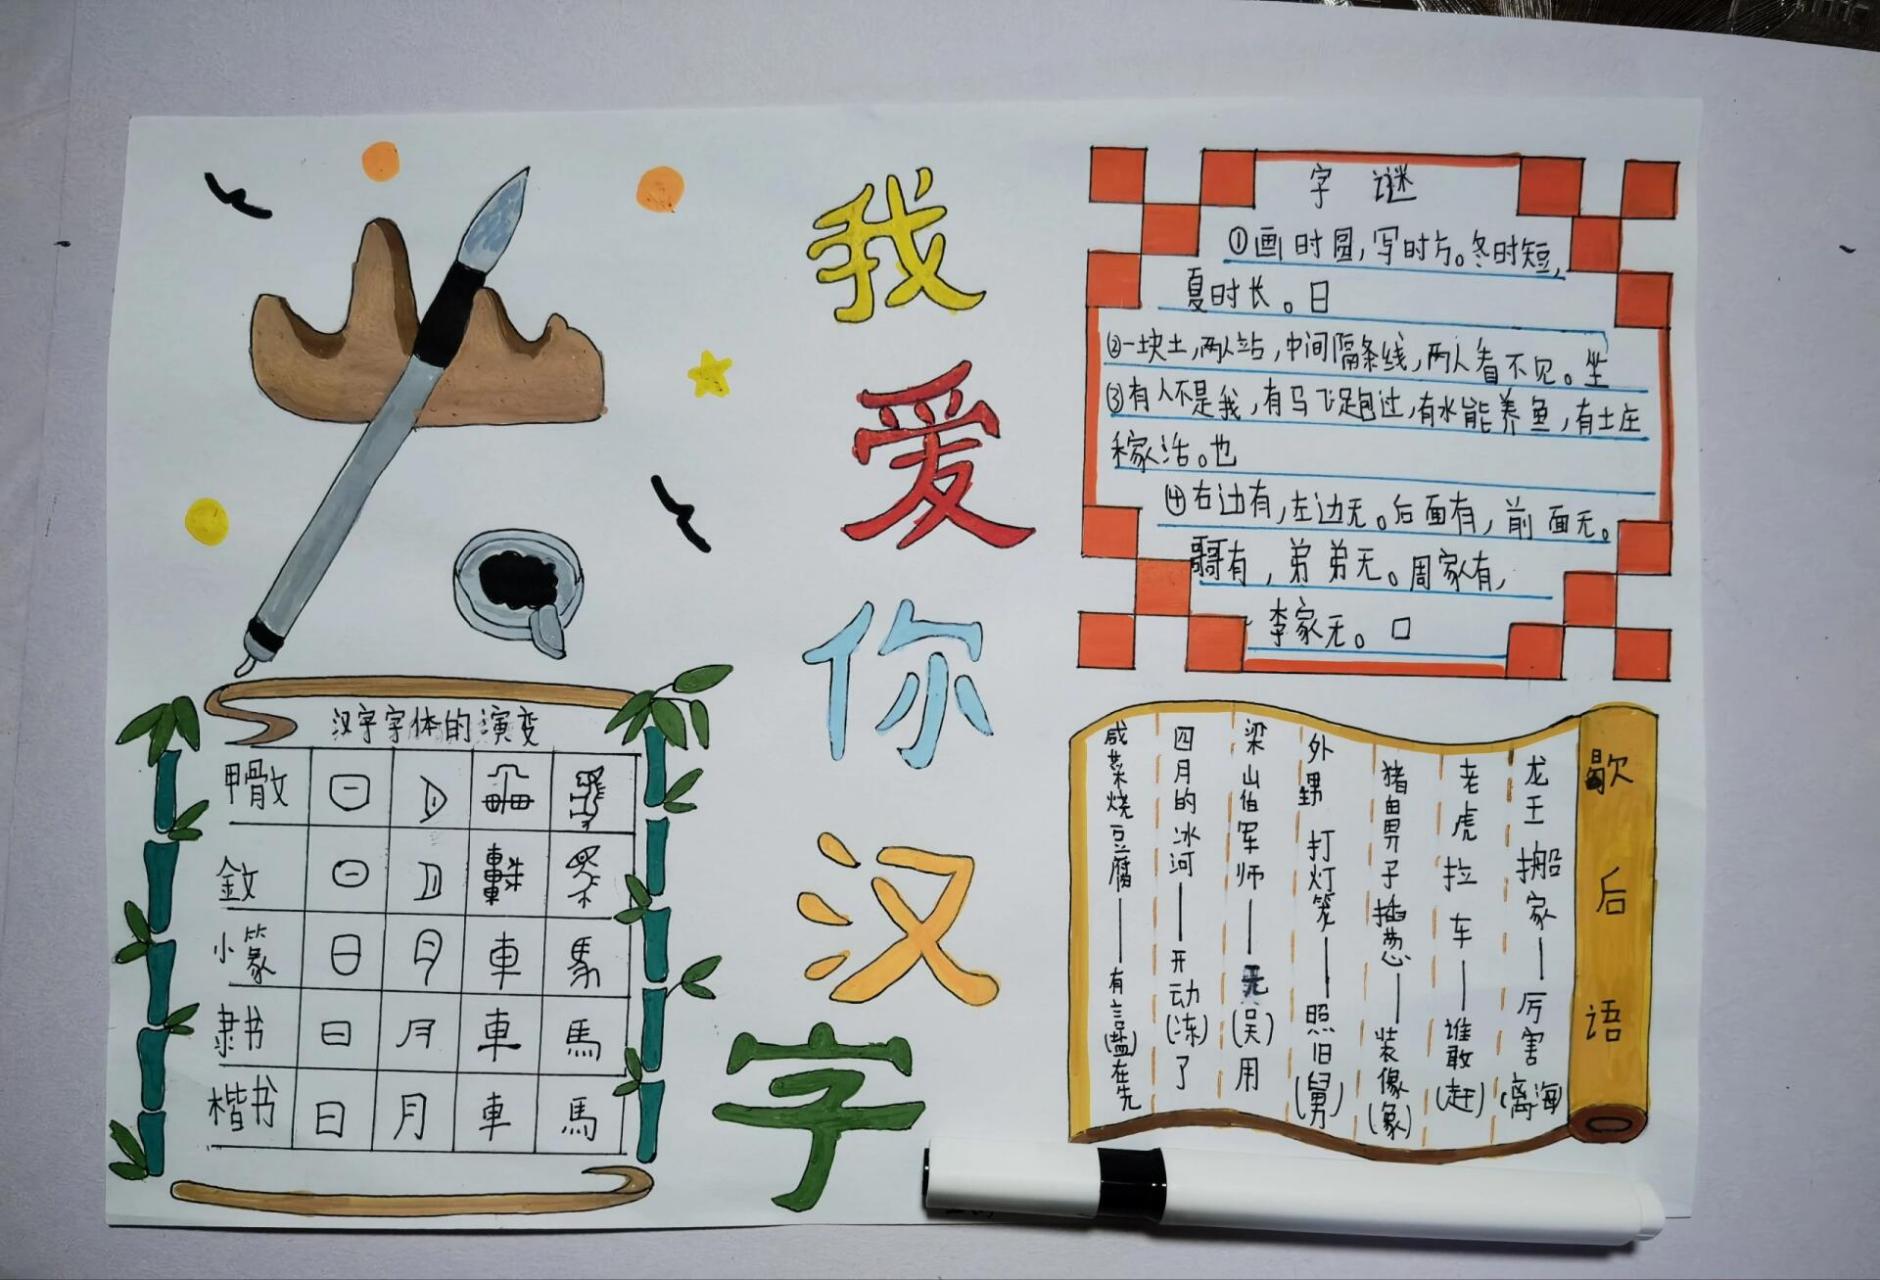 我爱你汉字
字 谜
①画时圆,写时方。冬时短,
夏时长。日
②一块土,两人站,中间隔条线,两人看不见。坐
③有人不是我,有马飞足跑过,有水能养鱼,有土庄
稼活。也
④右边有,左边无。后面有,前面无。
哥哥有,弟弟无。周家有,
李家无。口
汉字字体的演变
甲骨文
金文
小篆
隶书 日 月 車 馬
楷书 日 月 車 馬
歇后语
龙王搬家——厉害(离海)
老虎拉车——谁敢(赶)
猪鼻子插葱——装像(象)
外甥打灯笼——照旧(舅)
梁山伯军师——无(吴)用
四月的冰河——开动(冻)了
咸菜烧豆腐——有言(盐)在先